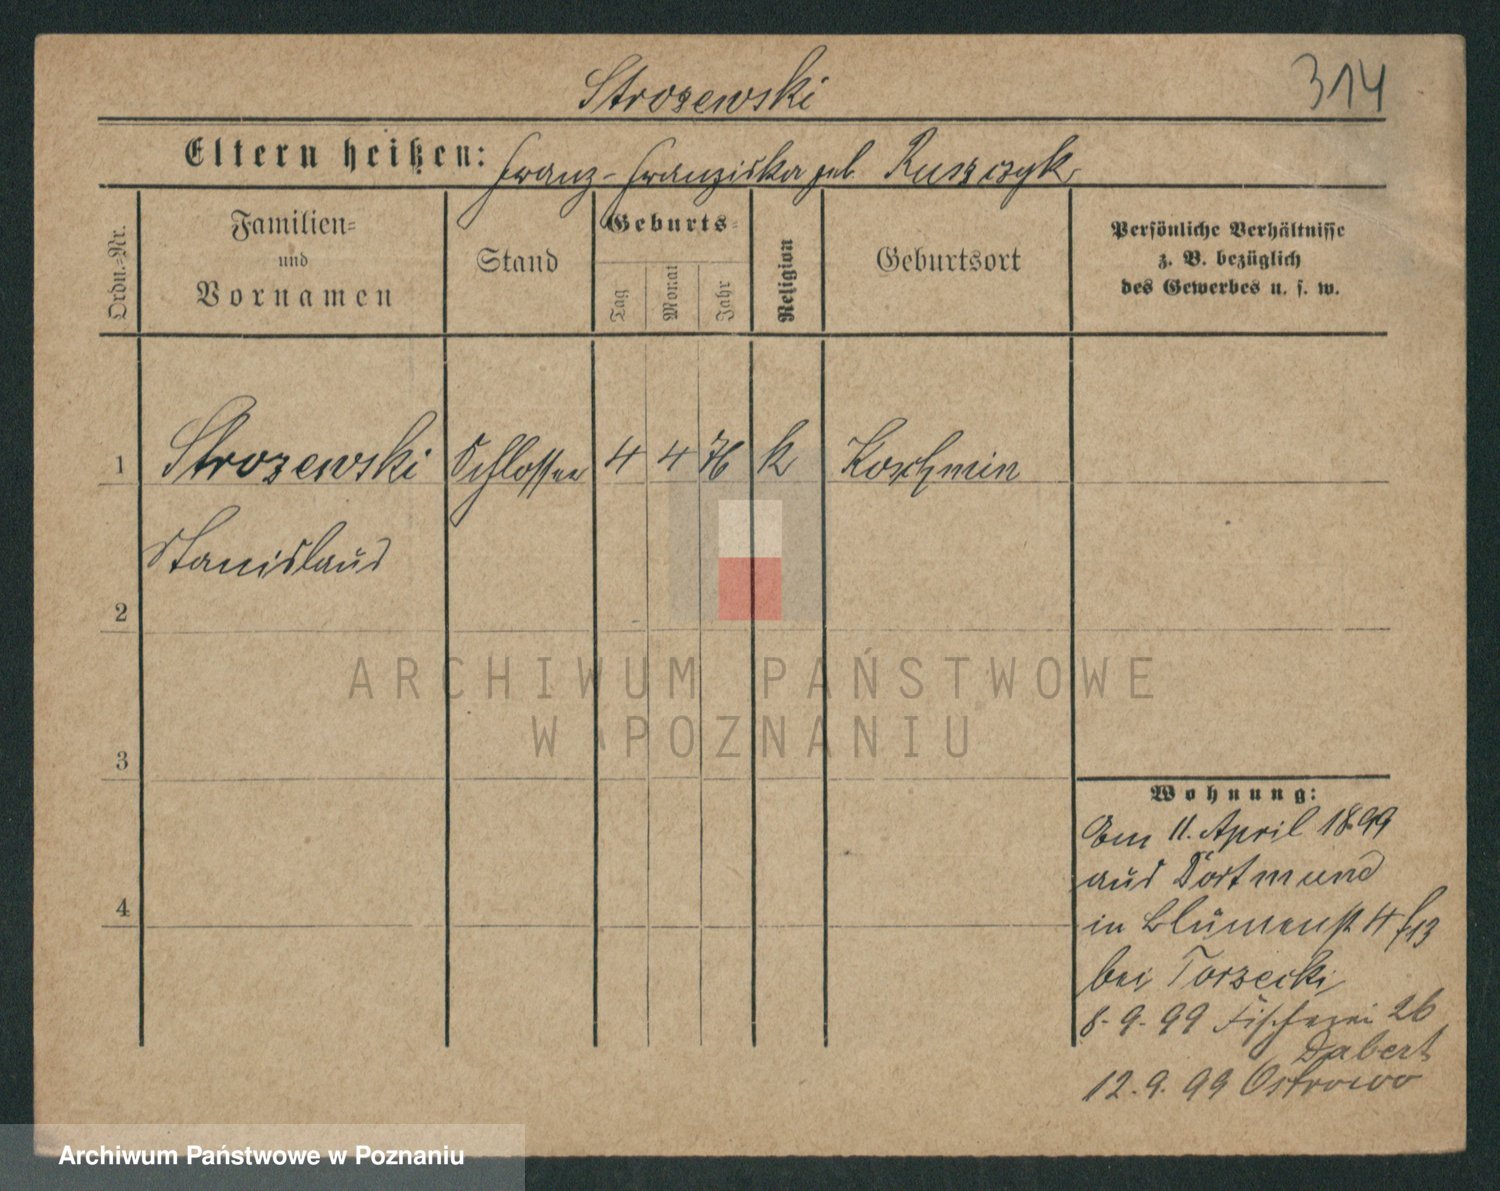 Strozewski 314
Eltern heißen: Franz - Franziska geb. Ruszczyk
Ordn.=Nr. Familien= und Vornamen Stand Geburts= Tag Monat Jahr Religion Geburtsort Persönliche Verhältnisse z. B. bezüglich des Gewerbes u. s. w.
1 Strozewski Schlosser 4 4 76 k Koschmin
Stanislaus
2
ARCHIWUM PAŃSTWOWE
W POZNANIU
3
Wohnung:
Am 11. April 1899
aus Dortmund
4
in Blumenst 4 f13
bei Torzecki
8.9.99 Fischerei 26
Dabert
12.9.99 Ostrowo
Archiwum Państwowe w Poznaniu